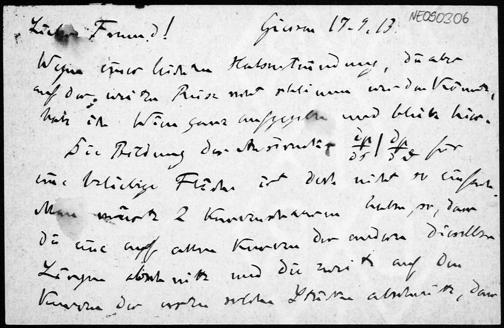 NE090306
Lieber Freund! Giessen 17.9.13.
Wegen einer leichten Halsentzündung, die aber
auf der weiten Reise schlimmer werden könnte,
habe ich Wien ganz aufgegeben und bleibe hier.
Die Bildung der für
eine beliebige Fläche ist doch nicht so einfach.
Man müsste 2 Kurvenscharen haben, so, dass
die eine auf allen Kurven der andern dieselben
Längen abschneidet und die zweite auf den
Kurven der ersten solche Stücke abschneidet, dass